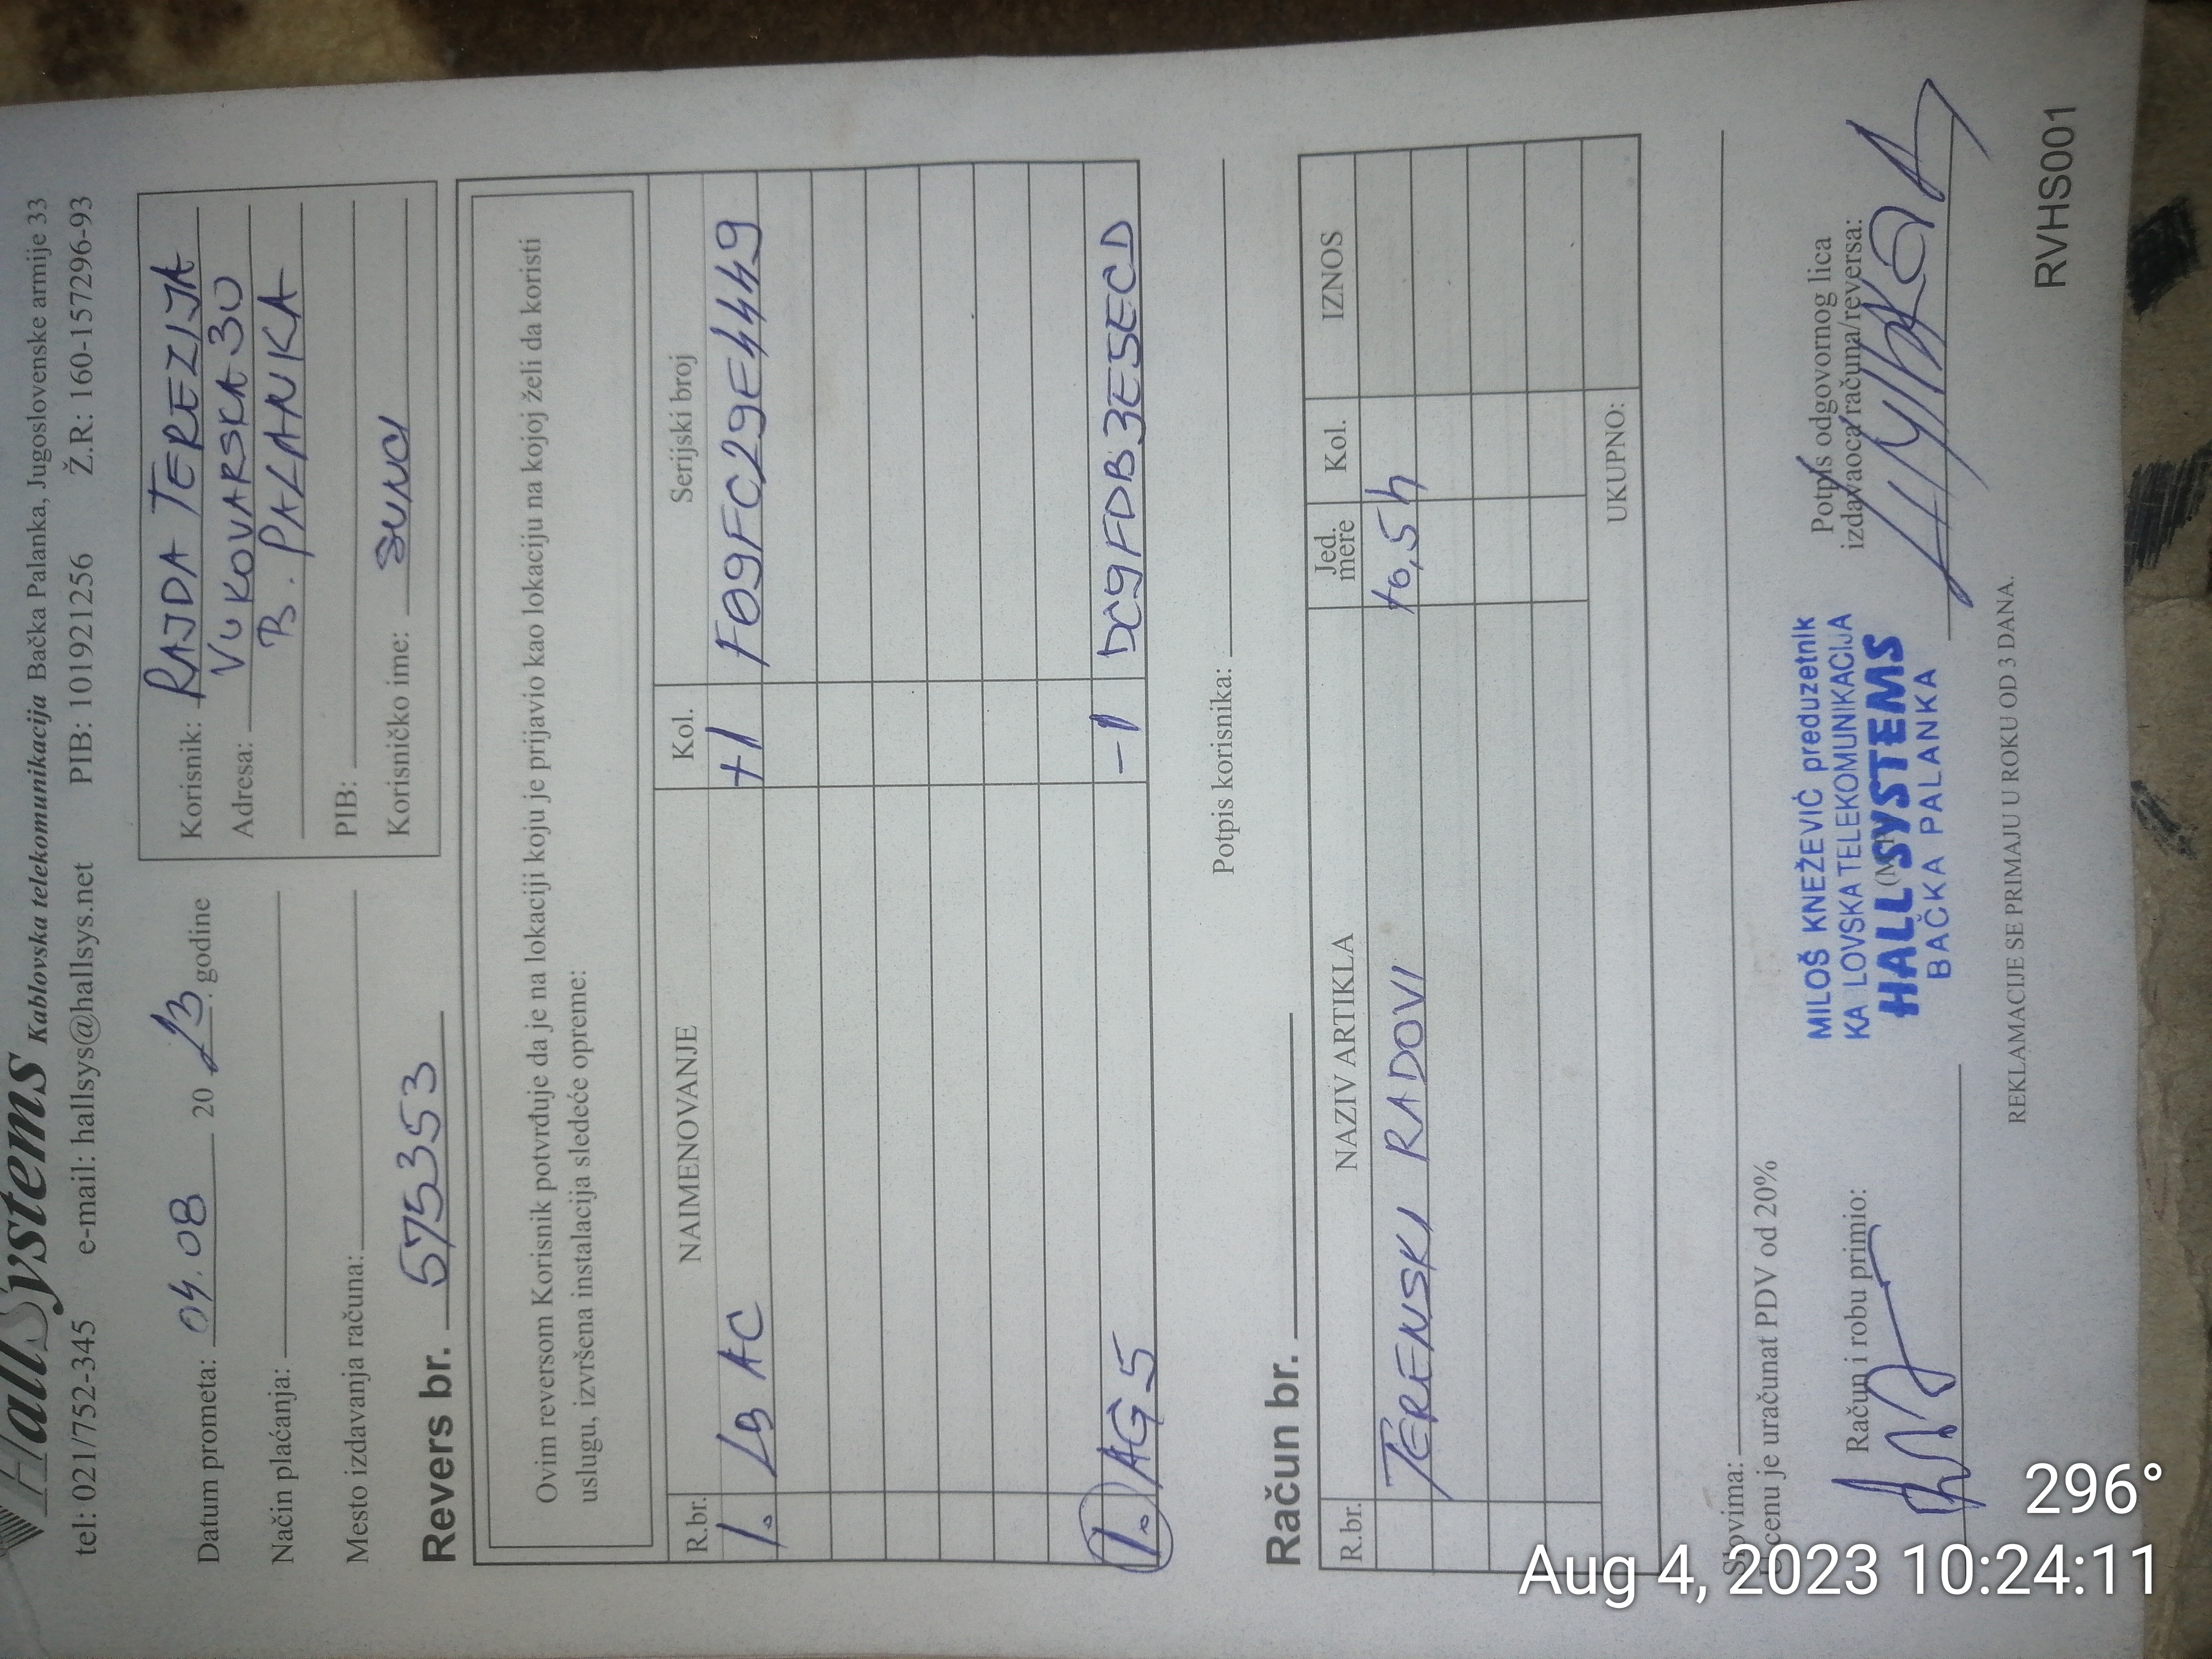 HallSystems Kablovska telekomunikacija Bačka Palanka, Jugoslovenske armije 33
tel: 021/752-345 e-mail: hallsys@hallsys.net PIB: 101921256 Ž.R.: 160-157296-93
Datum prometa: 04.08 20 23. godine
Način plaćanja:
Mesto izdavanja računa:
Korisnik: RAJDA TEREZIJA
Adresa: VUKOVARSKA 30
B. PALANKA
PIB:
Korisničko ime:
Revers br. 575353
Ovim reversom Korisnik potvrđuje da je na lokaciji koju je prijavio kao lokaciju na kojoj želi da koristi
uslugu, izvršena instalacija sledeće opreme:
R.br. NAIMENOVANJE Kol. Serijski broj
1. LB AC +1 F09FC29E4449
1. AG 5 -1 DC9FDB3E5ECD
Potpis korisnika:
Račun br.
R.br. NAZIV ARTIKLA Jed. mere Kol. IZNOS
TERENSKI RADOVI +0,5h
UKUPNO:
Slovima:
U cenu je uračunat PDV od 20%
Račun i robu primio:
MILOŠ KNEŽEVIĆ preduzetnik
KA LOVSKA TELEKOMUNIKACIJA
HALL SYSTEMS
BAČKA PALANKA
Potpis odgovornog lica
izdavaoca računa/reversa:
REKLAMACIJE SE PRIMAJU U ROKU OD 3 DANA.
RVHS001
296°
Aug 4, 2023 10:24:11